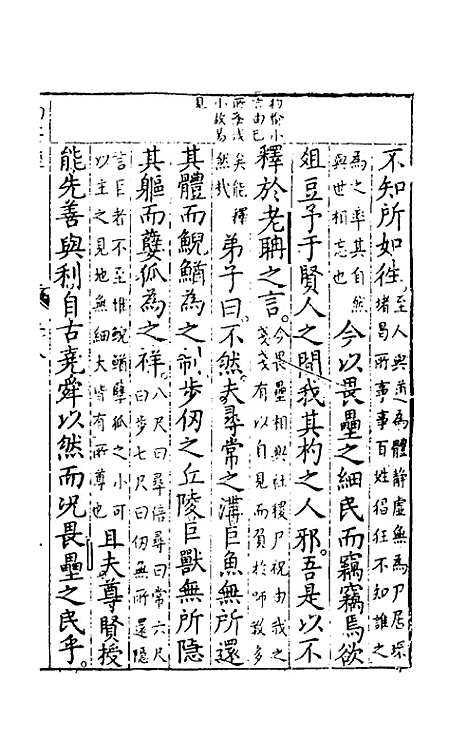 不知所如往
至人與道為體靜虛無為尸居環
堵曷所事事百姓猖狂不知誰之
為之率其自然
與世相忘也
今以畏壘之細民而竊竊焉欲
俎豆予于賢人之間我其杓之人邪。吾是以不
釋於老聃之言。
今畏壘相與社稷尸祝由我之
戔戔有以自見而負於師教多
矣能釋
然哉
弟子曰。不然。夫尋常之溝巨魚無所還
其體而鯢鰌為之制步仞之丘陵巨獸無所隱
其軀而孽狐為之祥。
八尺曰尋倍尋曰常六尺
曰步七尺曰仞無所還隱
言巨者不至惟鯢鰌孽狐之小可
以主之見地無細大皆有所尊也
且夫尊賢授
能先善與利自古堯舜以然而況畏壘之民乎。
小
言由已
淺
小故易
見